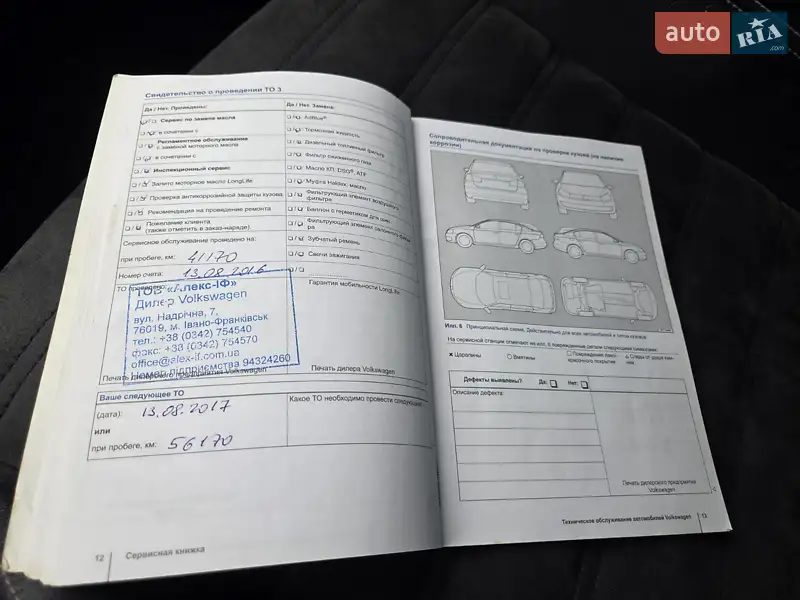 auto RIA .com
Свидетельство о проведении ТО 3
Да / Нет. Проведены:
Да / Нет. Замена:
Сервис по замене масла
в сочетании с
Регламентное обслуживание
с заменой моторного масла
в сочетании с
Инспекционный сервис
Залито моторное масло LongLife
Проверка антикоррозийной защиты кузова
Рекомендация на проведение ремонта
Пожелание клиента
(также отметить в заказ-наряде).
AdBlue®
Тормозная жидкость
Дизельный топливный фильтр
Фильтр сжиженного газа
Масло КП, DSG®, ATF
Муфта Haldex: масло
Фильтрующий элемент воздушного
фильтра
Баллон с герметиком для шин
Фильтрующий элемент салонного фильт
ра
Зубчатый ремень
Свечи зажигания
Сервисное обслуживание проведено на:
при пробеге, км: 41170
Номер счета: 13.08.2016
ТО проведено:
Гарантия мобильности LongLife
ТОВ «Алекс-ІФ»
Дилер Volkswagen
вул. Надрічна, 7,
76019, м. Івано-Франківськ
тел.: +38 (0342) 754540
факс: +38 (0342) 754570
office@alex-if.com.ua
Номер підприємства 94324260
Печать дилерского предприятия Volkswagen
Печать дилера Volkswagen
Ваше следующее ТО
(дата): 13.08.2017
или
при пробеге, км: 56170
Какое ТО необходимо провести следующим:
12 Сервисная книжка
Сопроводительная документация по проверке кузова (на наличие
коррозии)
Илл. 6 Принципиальная схема. Действительно для всех автомобилей и типов кузовов
На сервисной станции отмечают на илл. 6 повреждённые детали следующими символами:
Царапины
Вмятины
Повреждение лако-
красочного покрытия
Следы от удара кам-
нем
Дефекты выявлены? Да: Нет:
Описание дефекта:
Печать дилерского предприятия
Volkswagen
Техническое обслуживание автомобилей Volkswagen 13